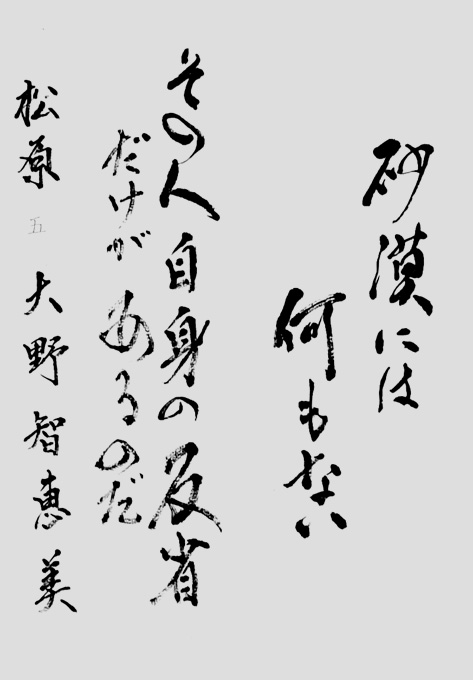 砂漠には
何もない
その人自身の反省
だけがあるのだ
松原 五 大野智恵美